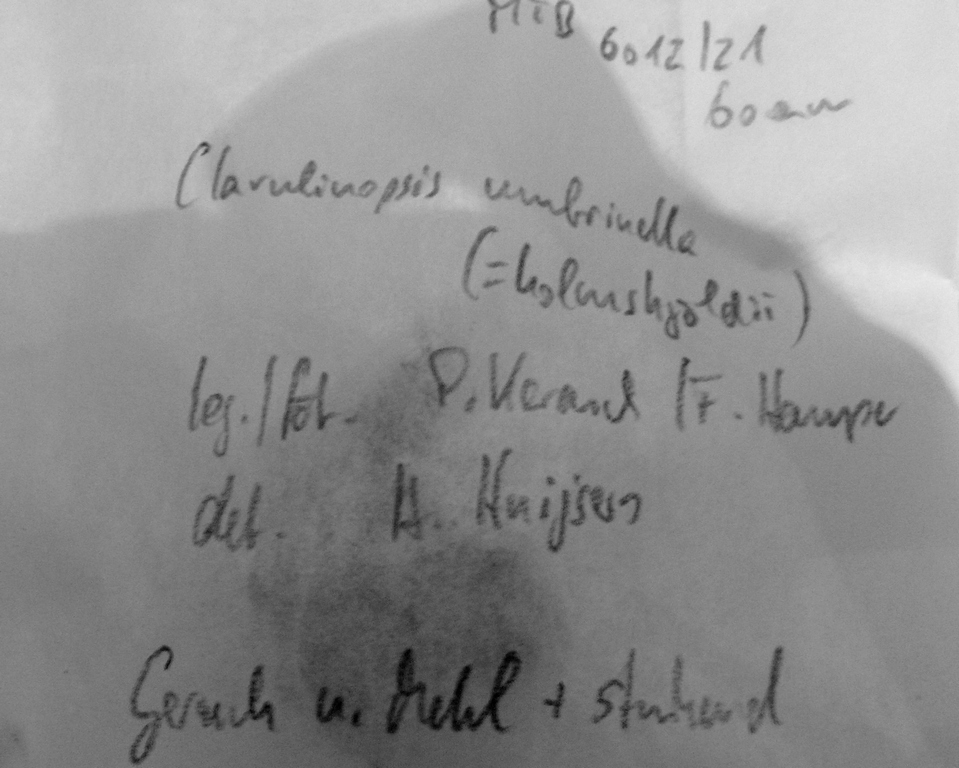 MTB
6012/21
60
Clavulinopsis umbrinella
(=holmskjoldii)
leg./fot. P. Keramd /F. Hampe
det. H. Huijsen
Geruch n. Mehl + stinkend